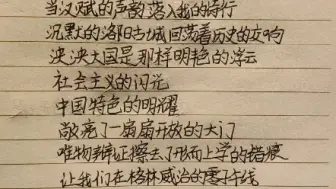 当汉赋的声韵落入我的诗行
沉默的洛阳古城回荡着历史的交响
泱泱大国是那样明艳的浮云
社会主义的闪光
中国特色的明耀
敲亮了一扇扇开放的大门
唯物辩证擦去了形而上学的错痕
让我们在格林威治的零子午线